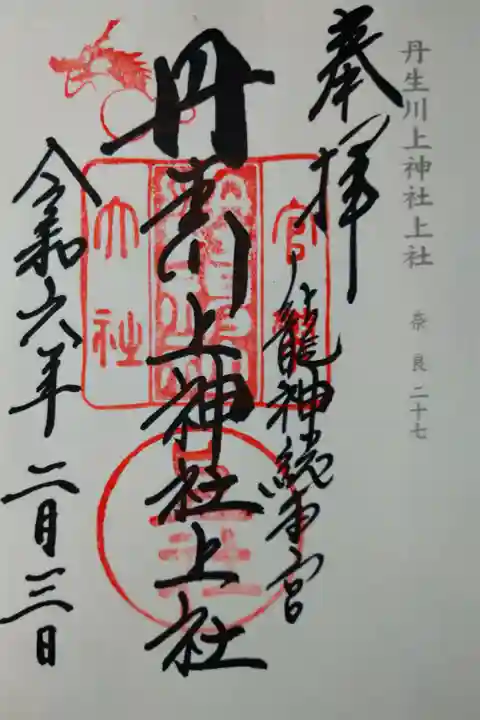 丹生川上神社上社
奈良 二十七
奉拝
龍神総本宮
丹生川上神社上社
官
大社
令和六年二月三日